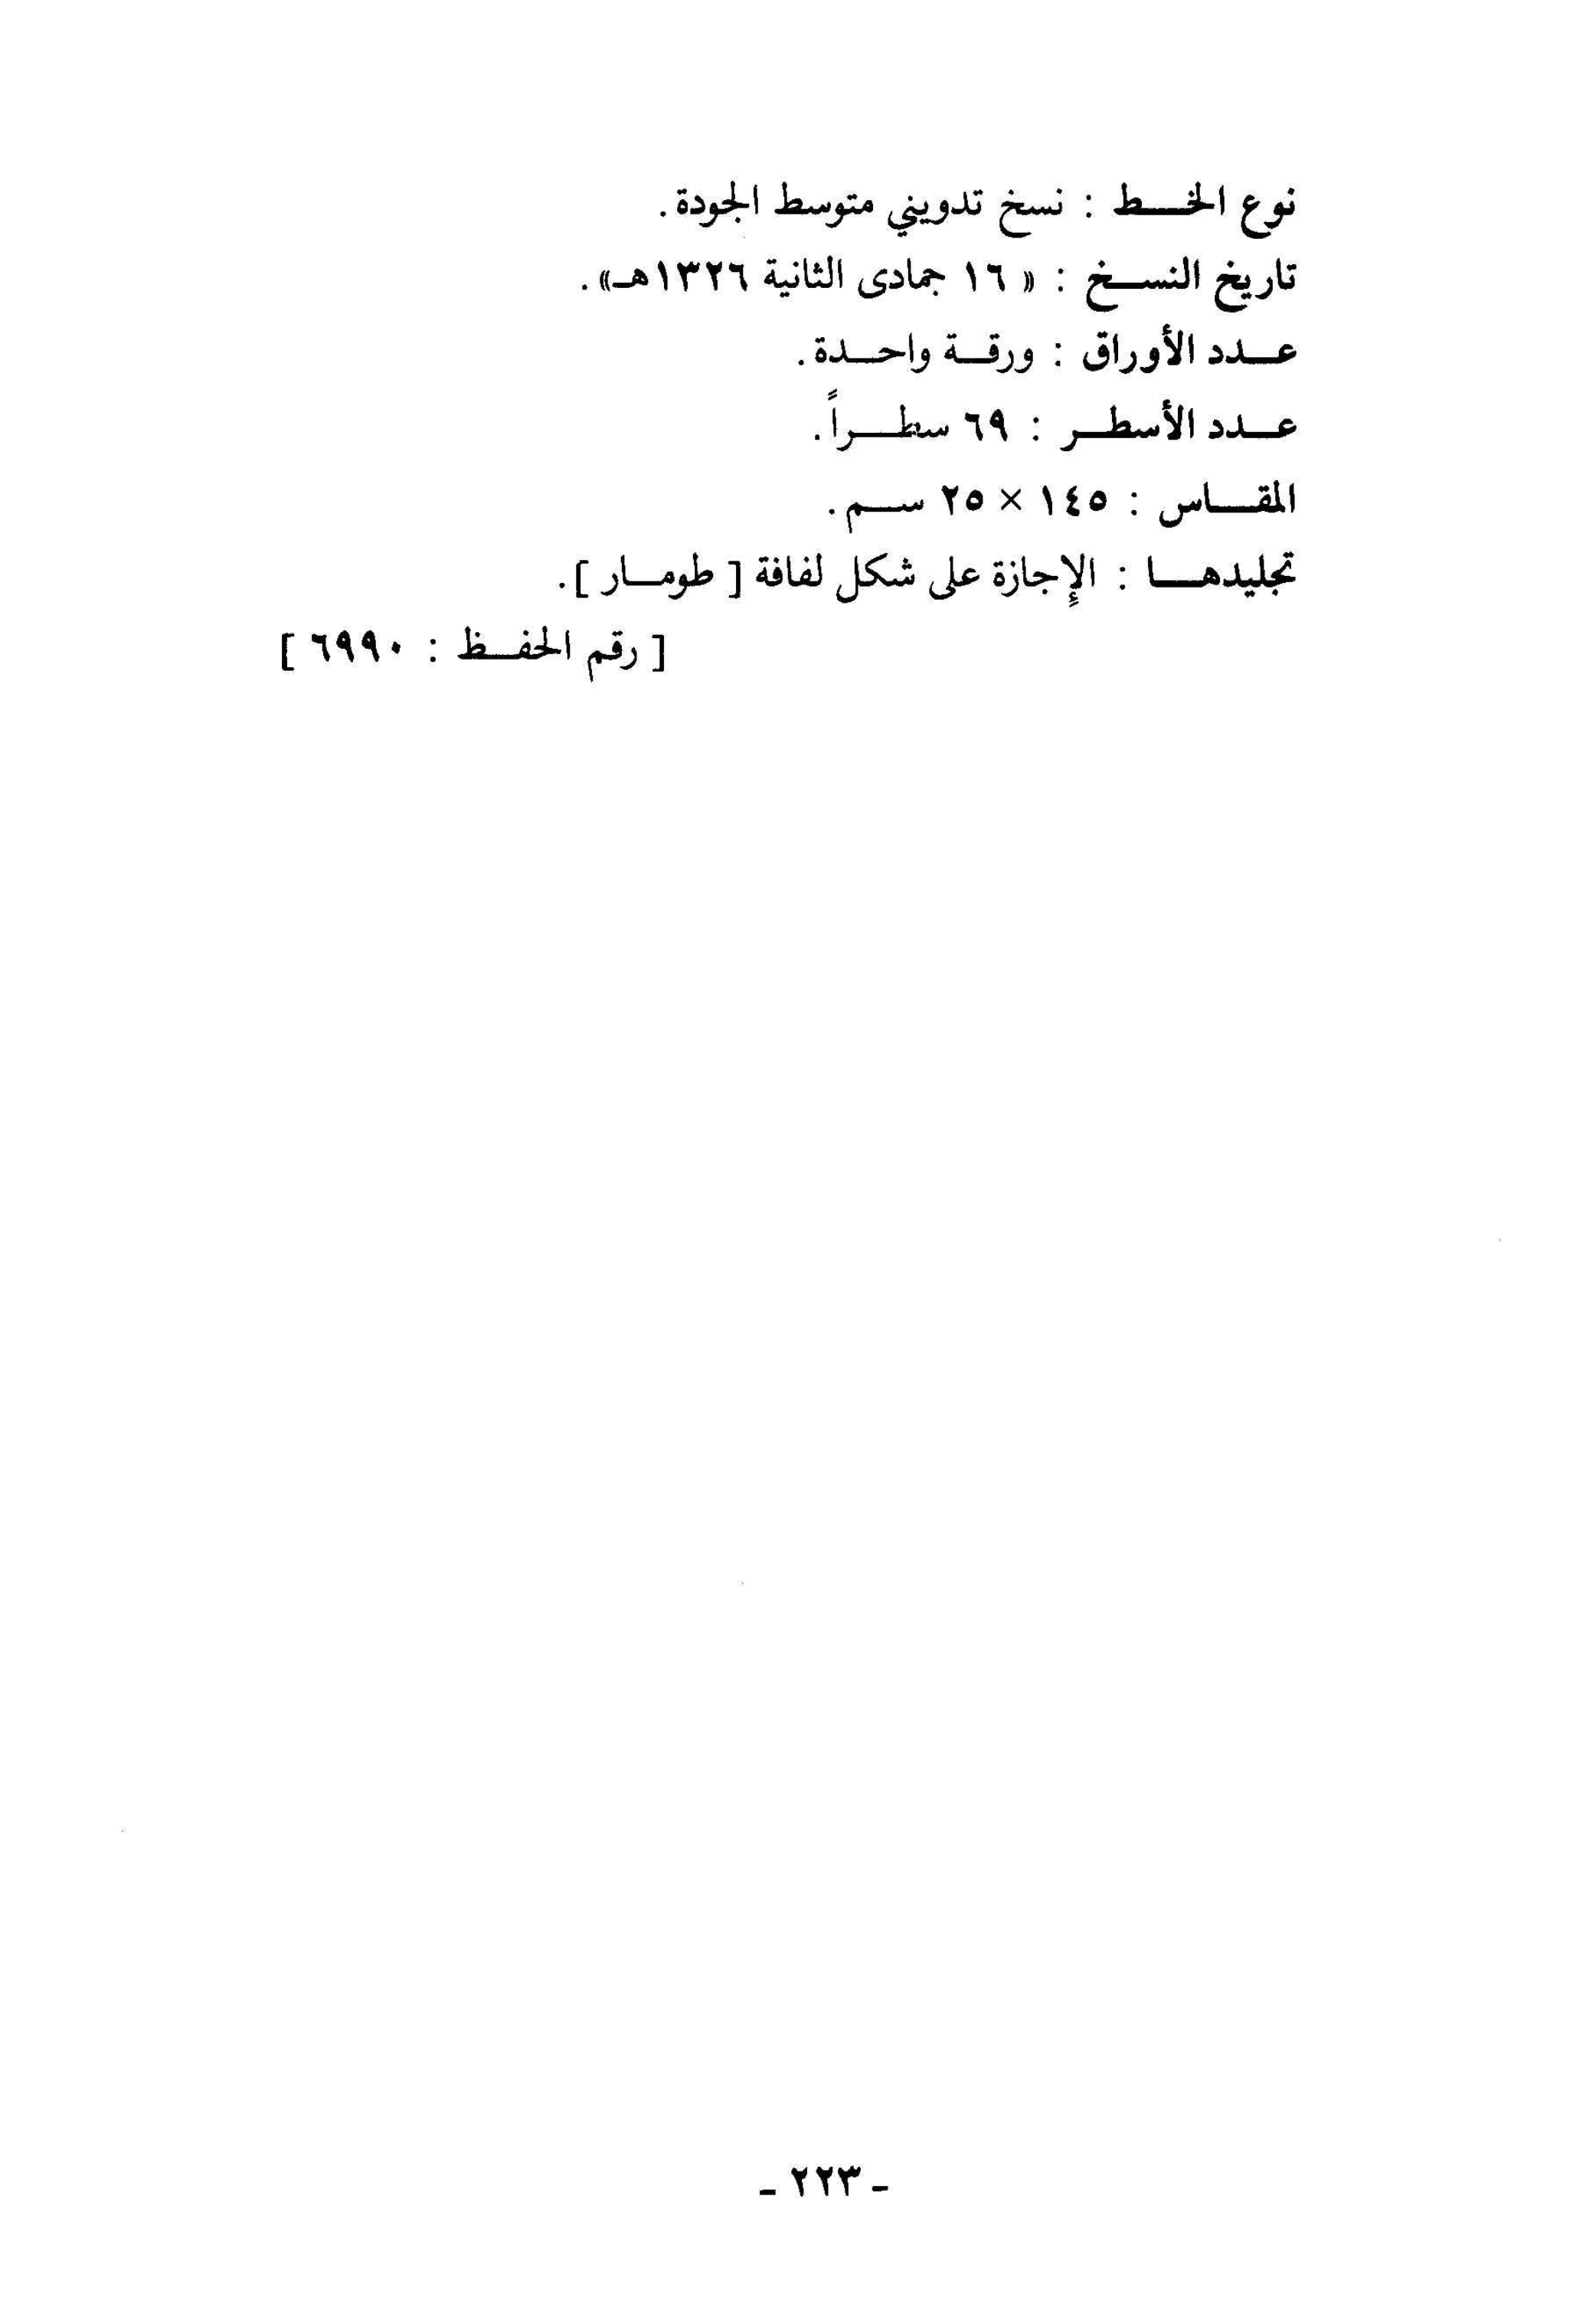 نوع الخط : نسخ تدويني متوسط الجودة.
تاريخ النسخ : « ١٦ جمادى الثانية ١٣٢٦هـ».
عدد الأوراق : ورقة واحدة.
عدد الأسطر : ٦٩ سطراً.
المقاس : ١٤٥ × ٢٥ سم.
تجليدها : الإجازة على شكل لفافة [ طومار ].
[ رقم الحفظ : ٦٩٩٠ ]
- ٢٢٣ -